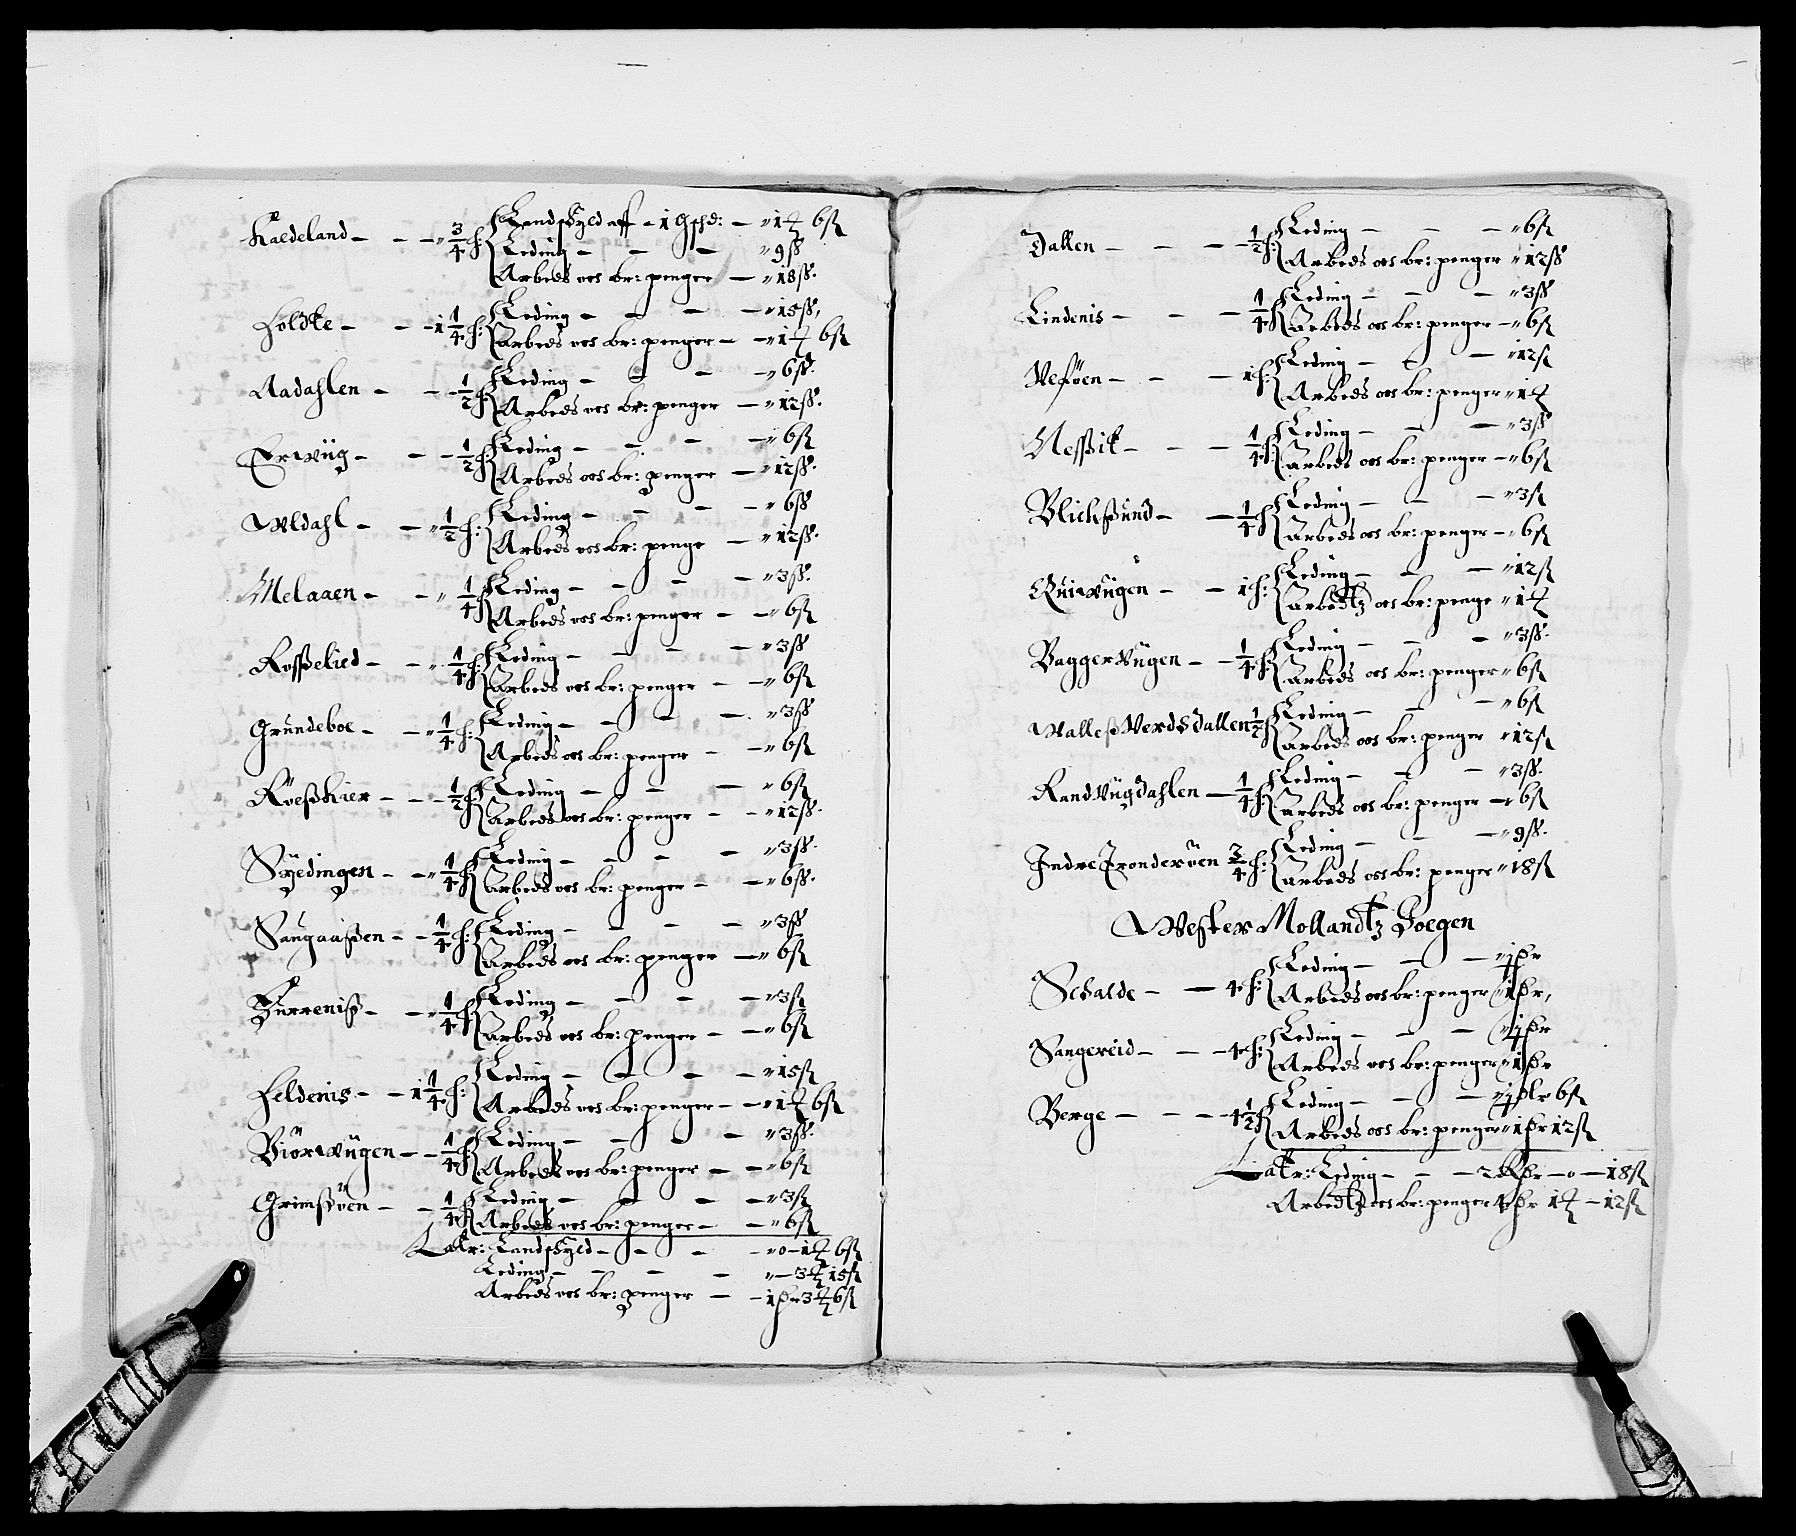 Kaedeland — — — 3/4 h: Landskyld aff — 1 gschd: — " 1 ort 6 ß
Leding — — — " 9 ß
Arbeds oc br: penger — " 18 ß.
Foldke — — — 1 1/4 h: Leding — — — " 15 ß,
Arbeds oc br: penger — " 1 ort 6 ß
Aadahlen — — — 1/2 h: Leding — — — " 6 ß.
Arbeds oc br: penger — " 12 ß.
Erwiig — — — 1/2 h: Leding — — — " 6 ß
Arbeds oc br: penger — " 12 ß.
Uldahl — — " 1/2 h: Leding — — — " 6 ß
Arbeds oc br: penge — " 12 ß.
Melaaen — — " 1/4 h: Leding — — — " 3 ß.
Arbeds oc br: penger — " 6 ß
Rosßelied — — " 1/4 h: Leding — — — " 3 ß
Arbeds oc br: penger — " 6 ß
Grundeboe — — " 1/4 h: Leding — — — " 3 ß
Arbeds oc br: penger — " 6 ß
Röeßkier — — — 1/2 h: Leding — — — " 6 ß
Arbeds oc br: penger — " 12 ß.
Syedingen — — " 1/4 h: Leding — — — " 3 ß.
Arbeds oc br: penger — " 6 ß.
Saugaaßen — — 1/4 h: Leding — — — " 3 ß
Arbeds oc br: penger — " 6 ß
Burreniß — — " 1/4 h: Leding — — — " 3 ß
Arbeds oc br: penger — " 6 ß
Feldenis — — 1 1/4 h: Leding — — — " 15 ß
Arbeds oc br: penger — " 1 ort 6 ß
Biörwügen — — 1/4 h: Leding — — — " 3 ß.
Arbeds oc br: penger — " 6 ß
Grimsöen — — 1/4 h: Leding — — — " 3 ß
Arbeds oc br: penger — " 6 ß
Latr: Landskyld — — — " 0 — 1 ort 6 ß
Leding — — — " — 3 ort 15 ß
Arbeds oc br: penger — — 1 hr 3 ort 6 ß
Dallen — — — 1/2 h: Leding — — — " 6 ß
Arbeds oc br: penger " 12 ß
Lindenis — — — 1/4 h: Leding — — — " 3 ß
Arbeds oc br: penger — " 6 ß
Vesöen — — — 1 h: Leding — — — " 12 ß
Arbeds oc br: penger " 1 ort
Nesßik — — — 1/4 h: Leding — — — " 3 ß
Arbeds oc br: penger — " 6 ß
Blichßund — — 1/4 h: Leding — — — " 3 ß
Arbeds oc br: penger — " 6 ß
Quiwügen — — 1 h: Leding — — — " 12 ß
Arbedtz oc br: penge " 1 ort
Baggerwügen — — 1/4 h: Leding — — — " 3 ß.
Arbeds oc br: penger " 6 ß
Walleß Verds Dallen 1/2 h: Leding — — — " 6 ß
Arbeds oc br: penger " 12 ß
Randwügdahlen — 1/4 h: Leding — — — " 3 ß.
Arbeds oc br: penger — " 6 ß
Indre Tronderöen 3/4 h: Leding — — — " 9 ß.
Arbeds oc br: penger " 18 ß
Wester Mollandtz Soegen
Schalde — — 4 h: Leding — — — " 1/2 hr
Arbeds oc br: penger " 1 hr,
Sangereid — — — 4 h: Leding — — — " 1/2 hr
Arbeds oc br: penger " 1 hr
Berge — — — 4 1/2 h: Leding — — — " 1/2 dlr 6 ß
Arbeds oc br: penger " 1 hr 12 ß
Latr: Leding — — — 2 hr — 0 — 18 ß
Arbedtz oc br: penger 4 hr 1 ort — 12 ß